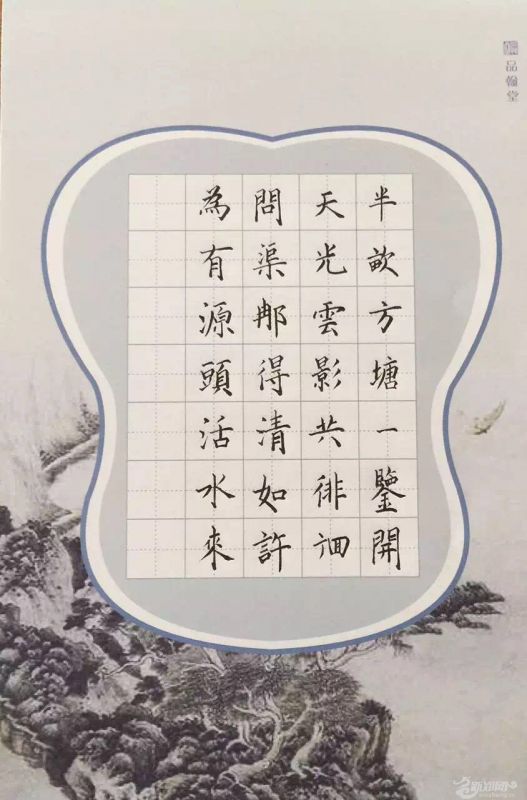 半畝方塘一鑒開
天光雲影共徘徊
問渠那得清如許
為有源頭活水來
品翰堂